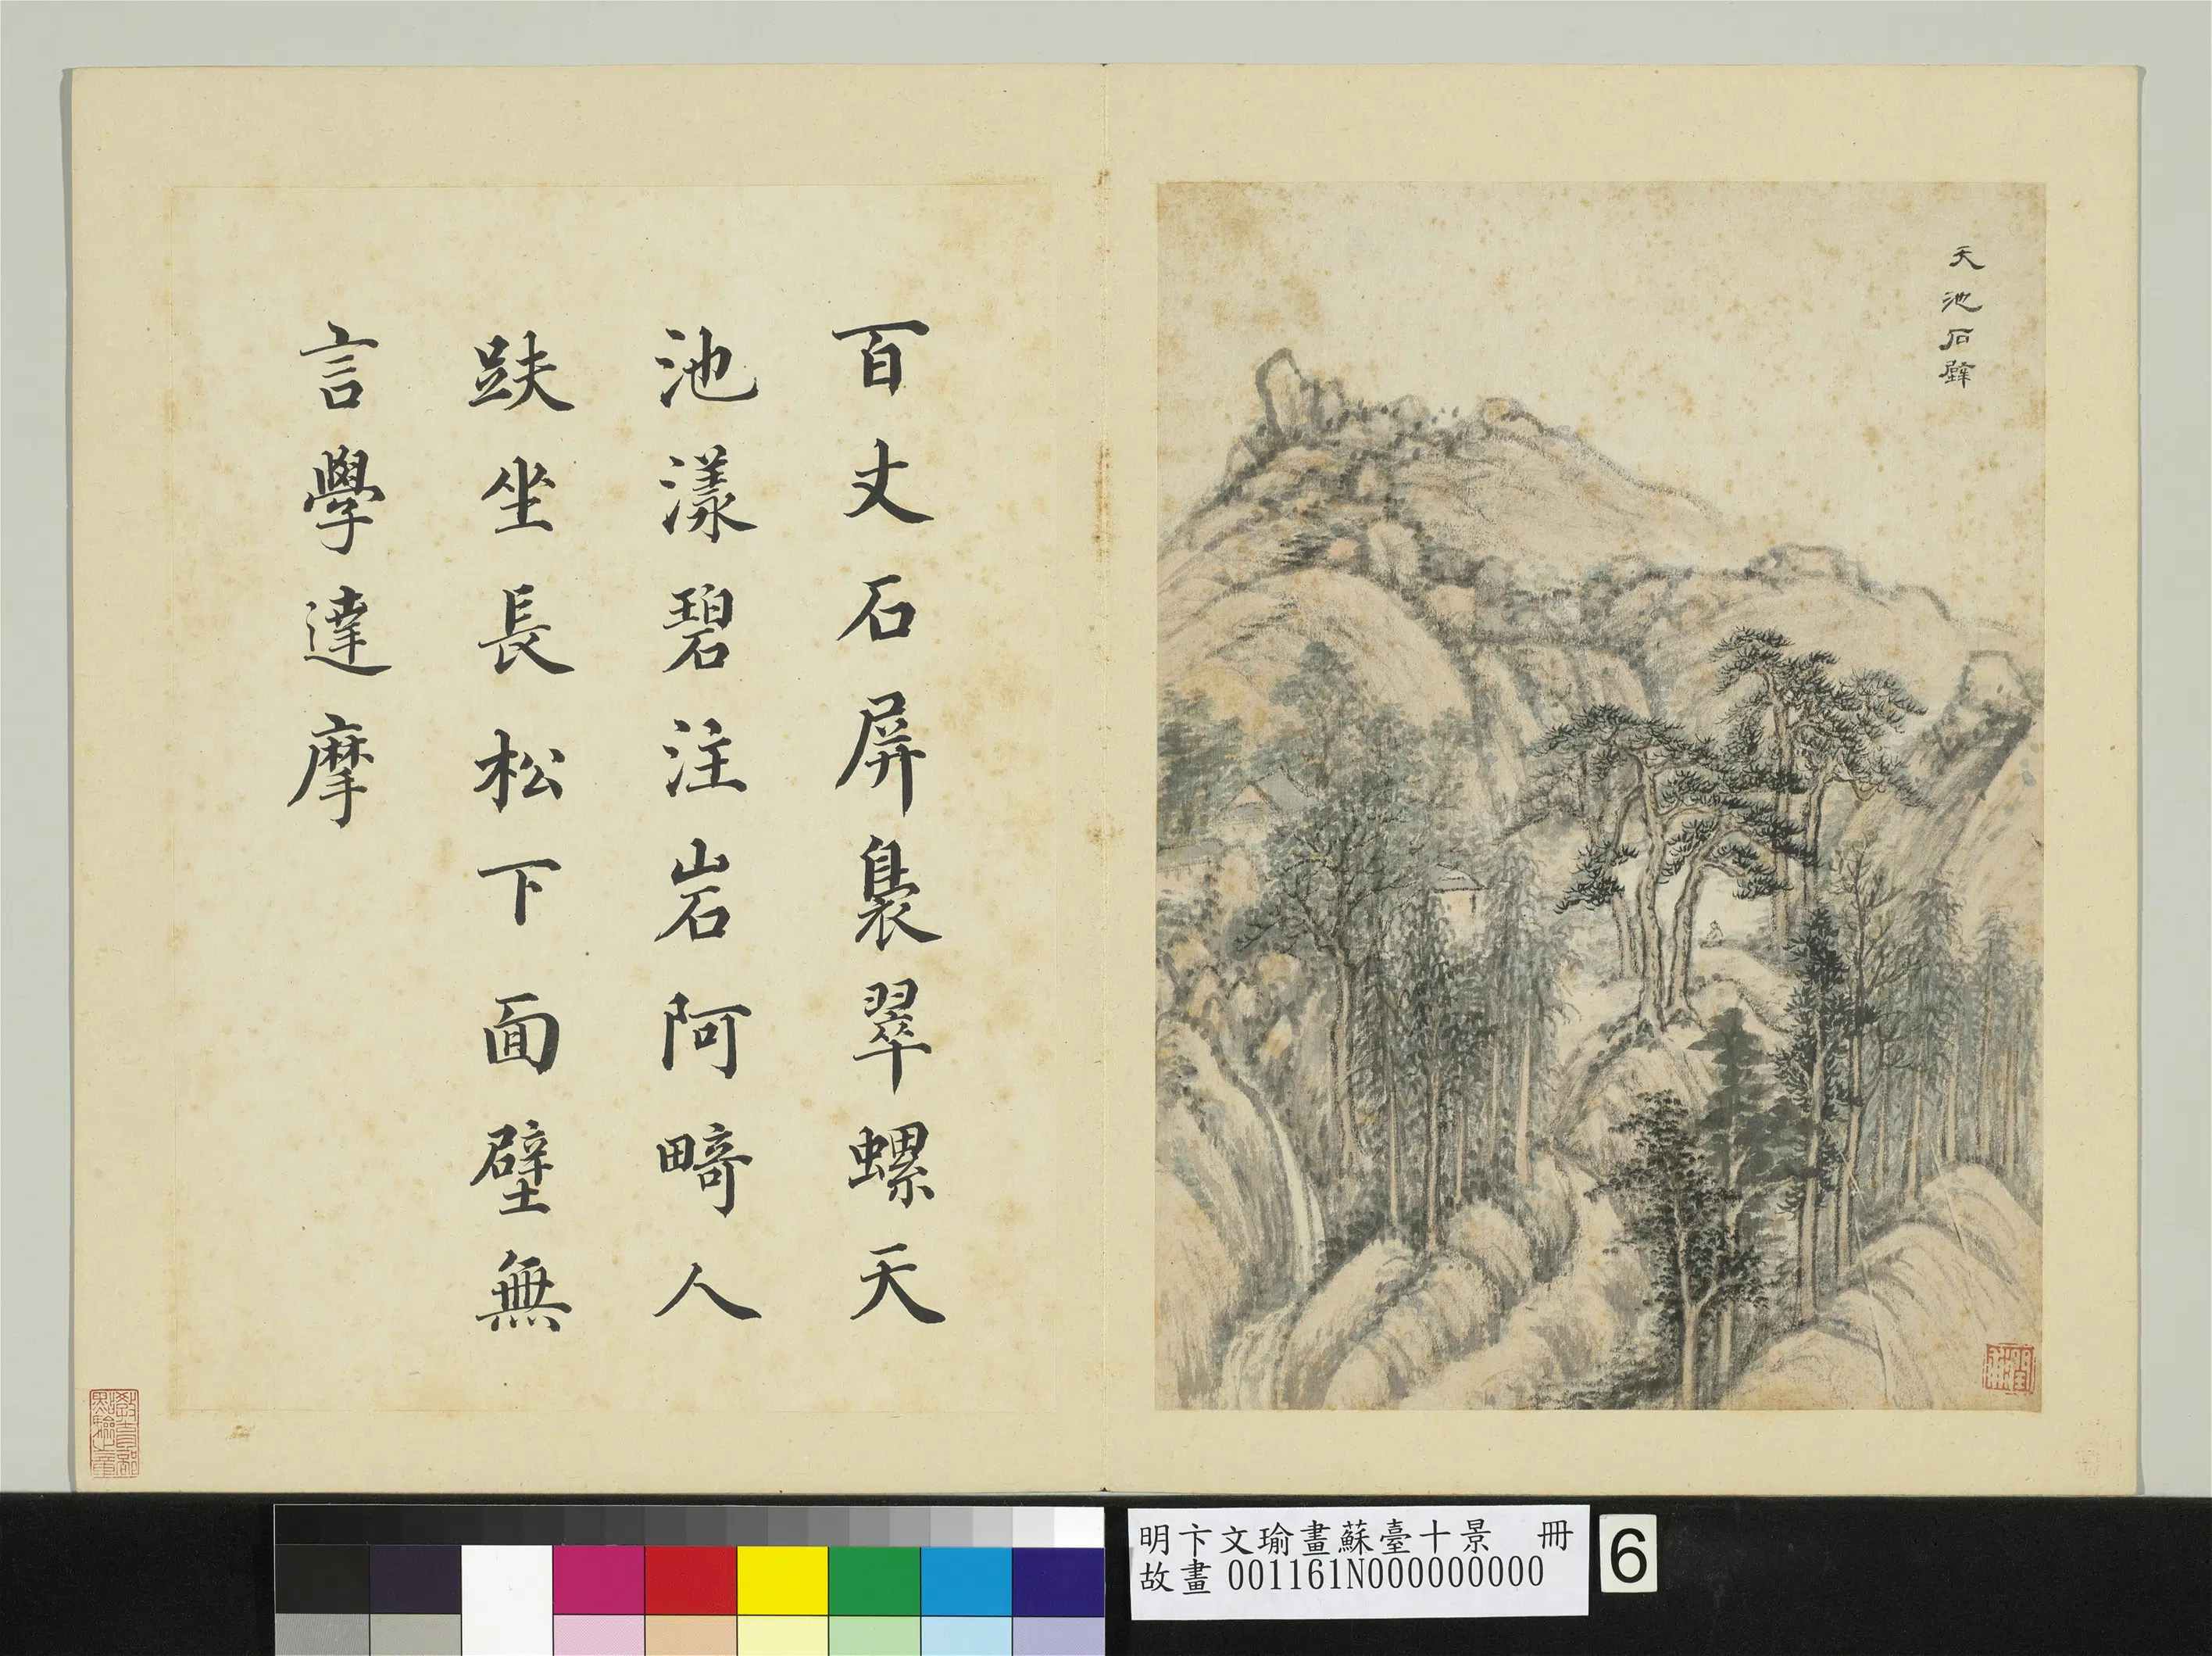 天池石壁
百丈石屏裊翠螺天
池漾碧注岩阿畸人
趺坐長松下面壁無
言學達摩
潤甫
明卞文瑜畫蘇臺十景 冊
故畫001161N000000000
6